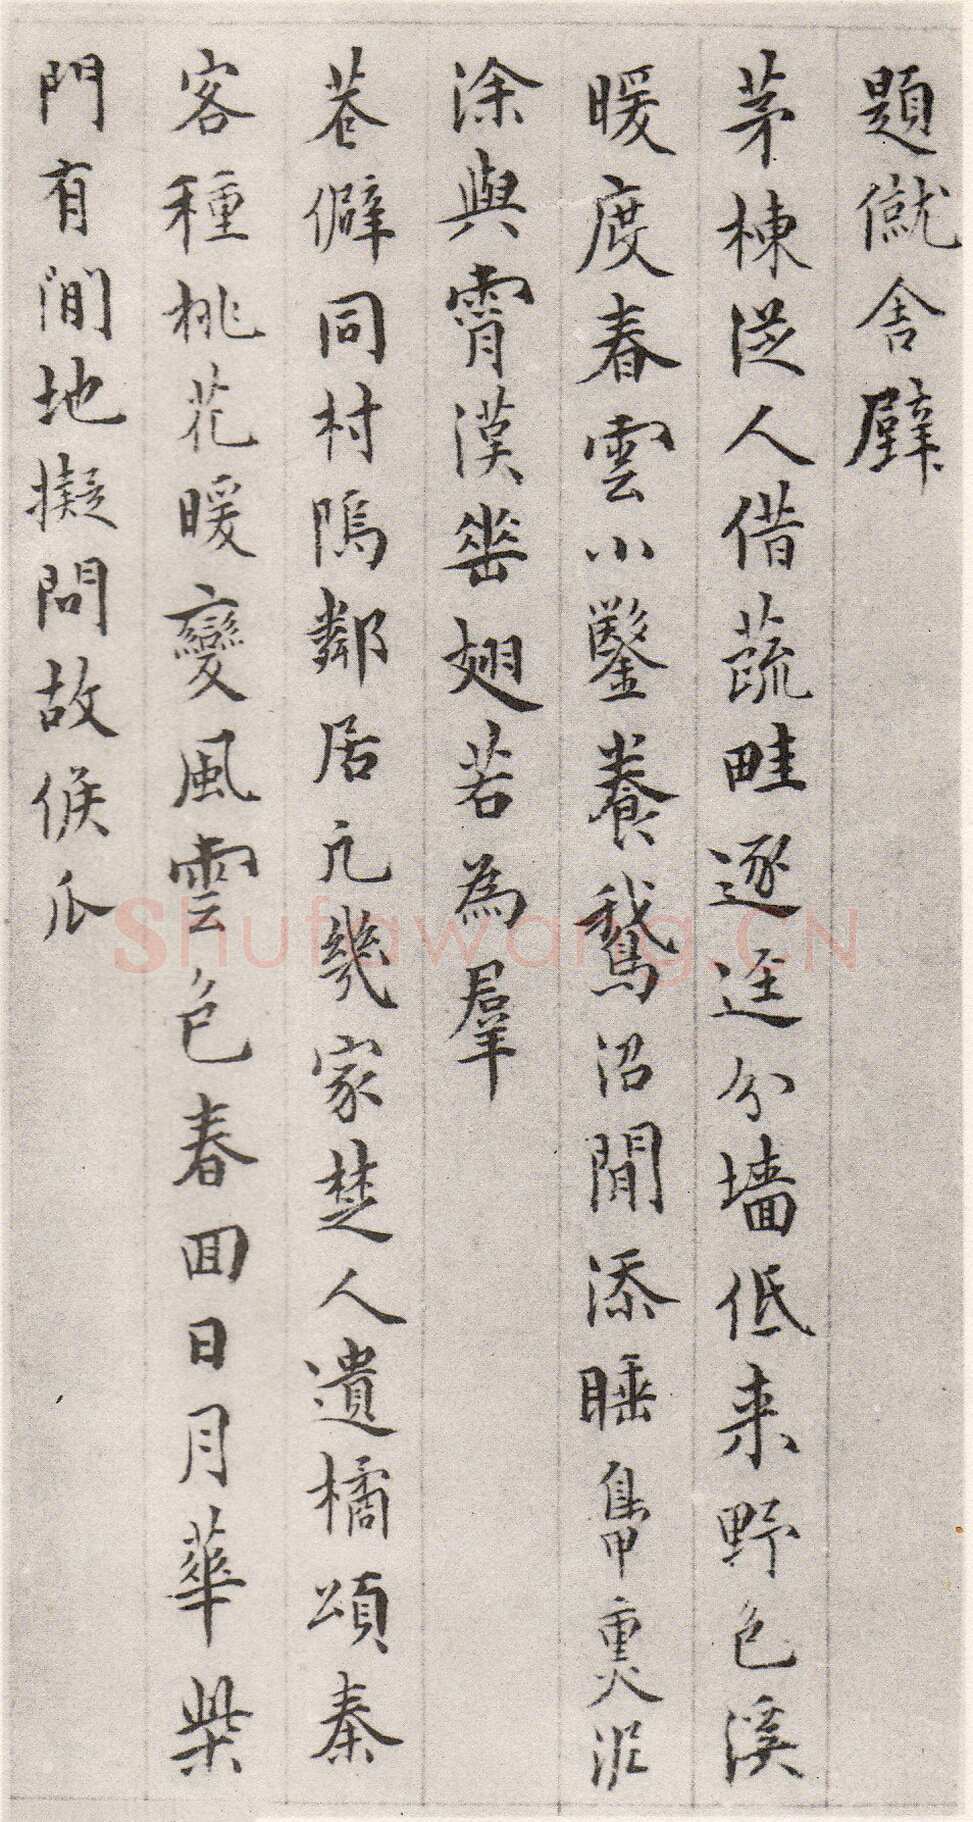 題僦舍壁
茅棟從人借蔬畦逐逕分墻低来野色溪
暖度春雲小鑿養鵞沼閒添睡鳧熏泥
涂與霄漢垂翅若為羣
巷僻同村隖鄰居凢幾家楚人遺橘頌秦
客種桃花暖變風雲色春回日月華柴
門有閒地擬問故侯瓜
Shufawang.CN